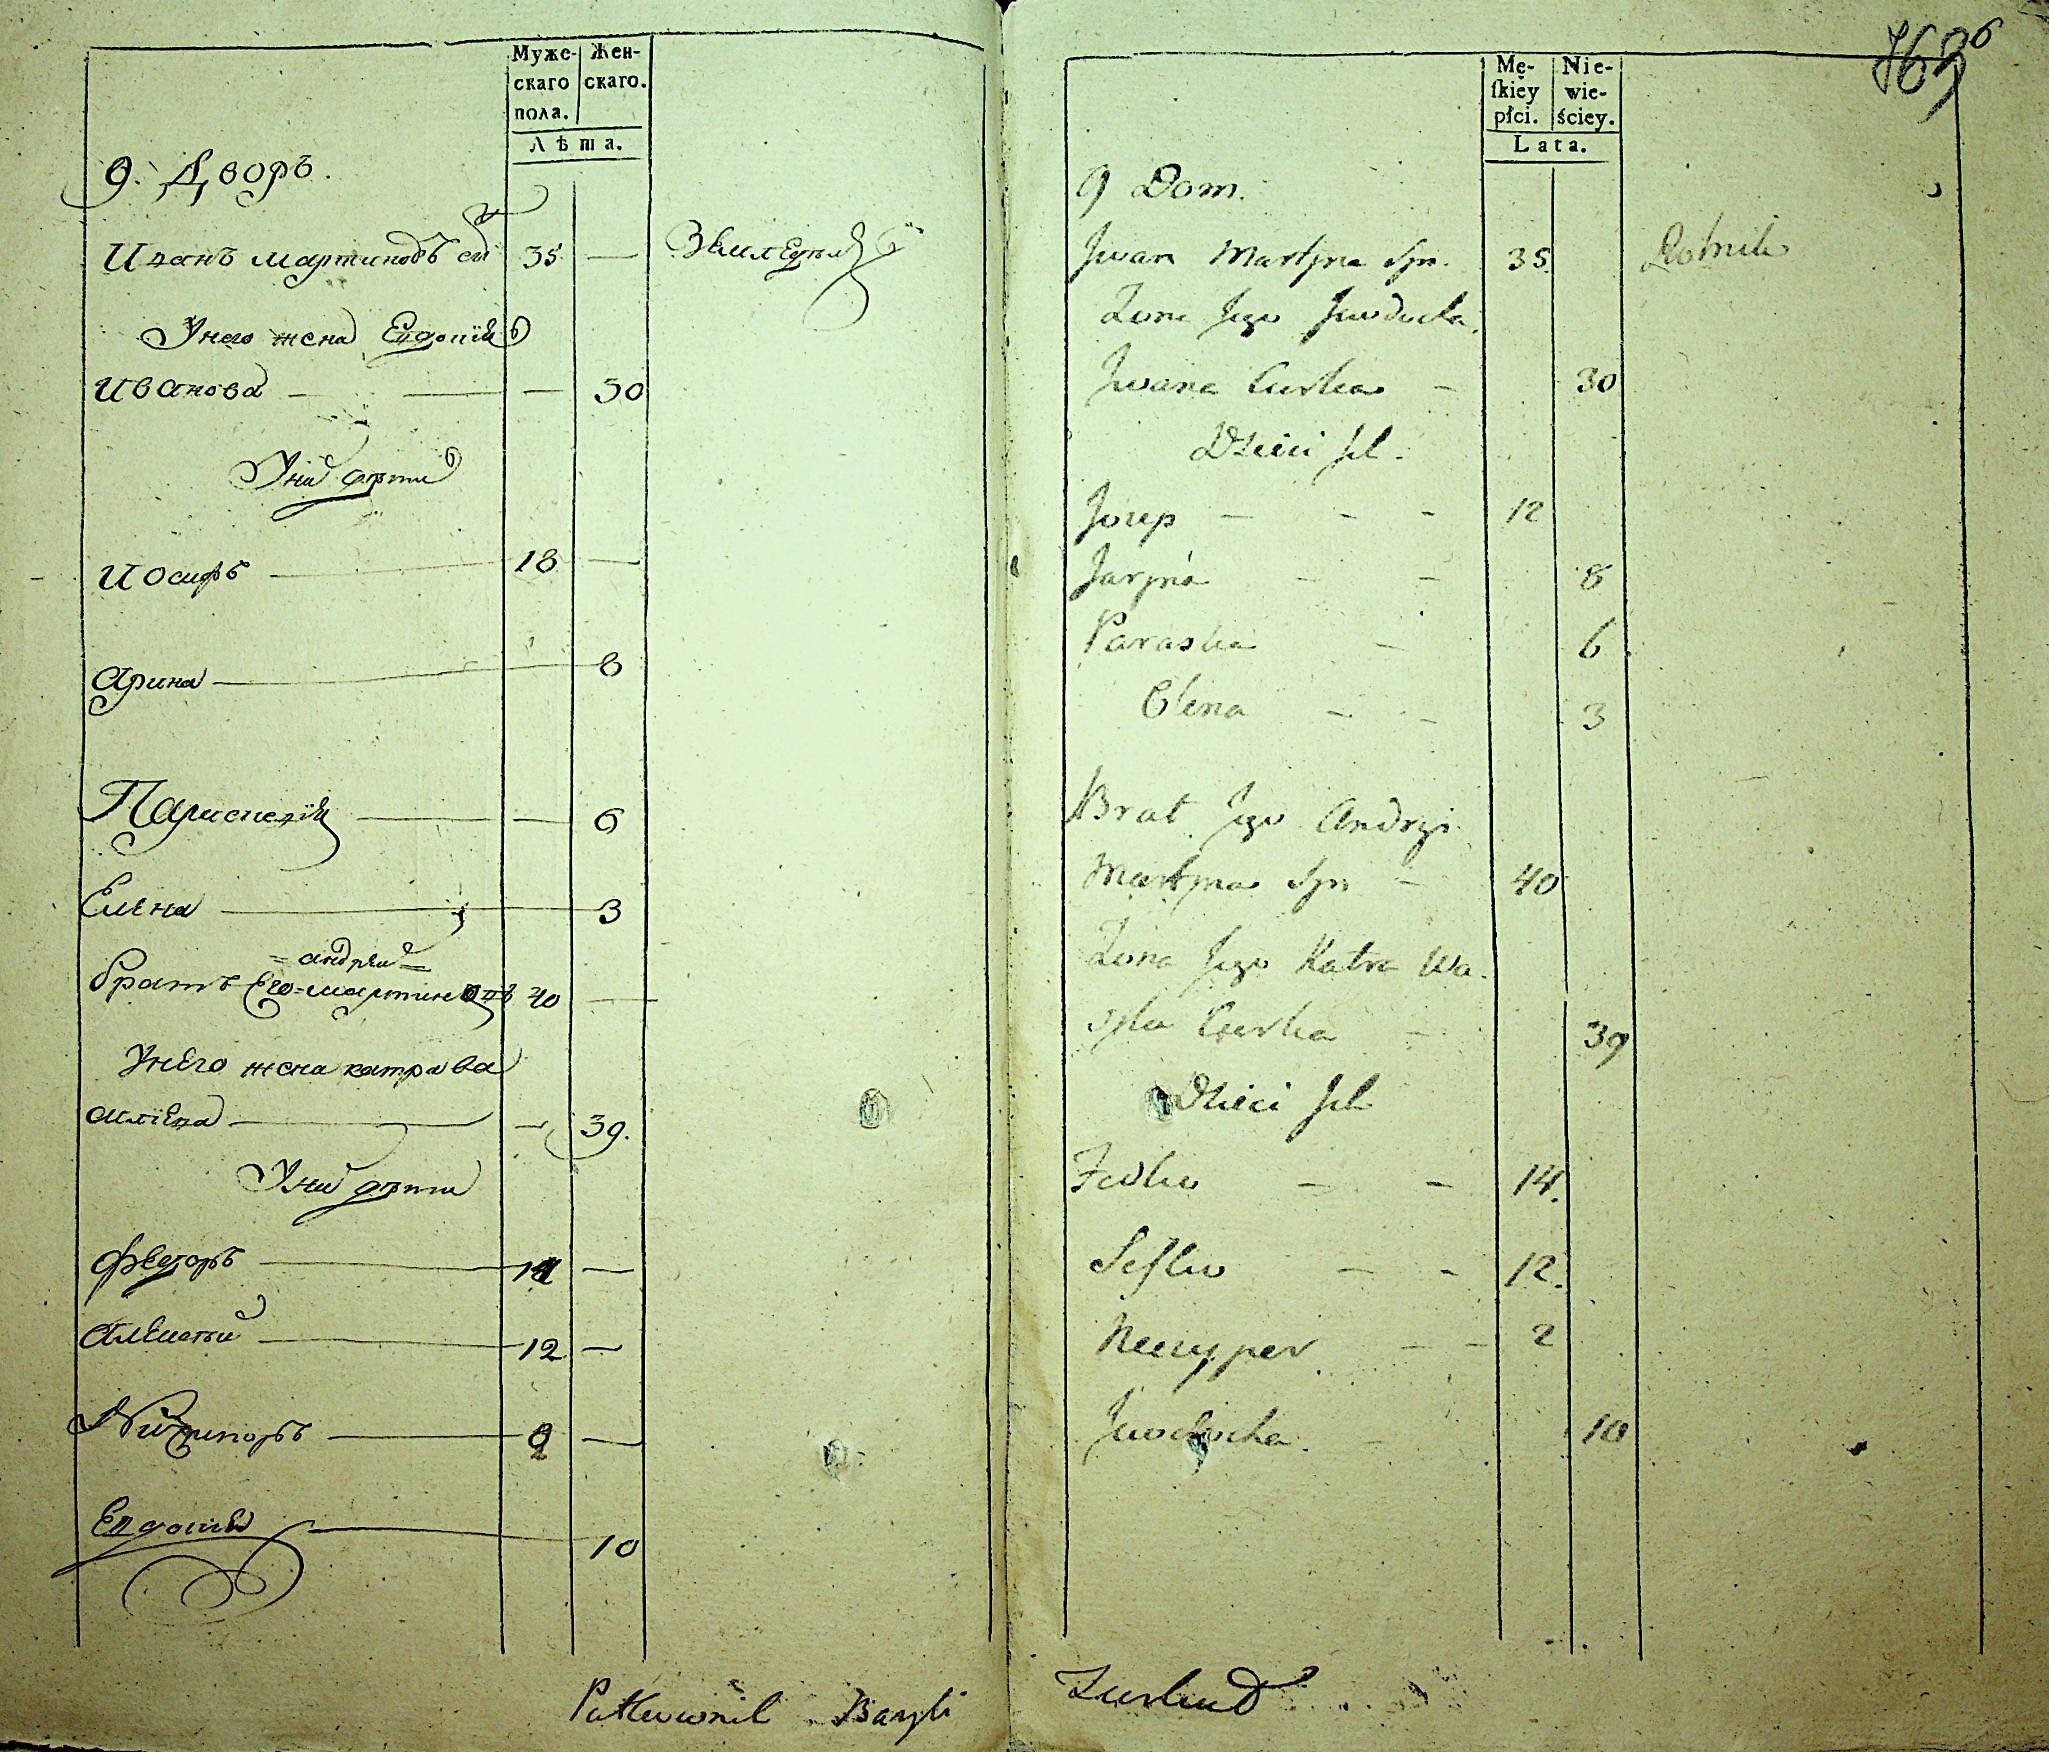 Муже-
скаго
пола.
Жен-
скаго.
Лѣта.
9. Дворъ.
Иванъ мартиновъ сы 35 — Земледѣл
Унего жена Евдокія
Иванова — — — 30
Уних дѣти
Иосифъ — 18 —
Арина — 8
Параскевія — — 6
Елена — 3
= андрей =
братъ Его = мартиновъ 40 —
Унего жена катра ва
силіева — — 39.
Уних дѣти
Федоръ — 14 —
Алексѣй — 12 —
Никипоръ — 2 —
Евдокія — 10
Pułkownik Bazyli
7636
Mę-
skiey
płci.
Nie-
wie-
ściey.
Lata.
9 Dom.
Jwan Martyna Syn. 35. Rolnik
Żona Jego Jewdocha.
Jwana Curka — 30
Dzieci Jch.
Josep — — — 12
Jaryna — — 8
Paraska — 6
Olena — — 3
Brat Jego Andrzi
Martyna Syn — 40
Żona Jego Katra Wa-
syla Curka — 39
Dzieci Jch
Fedko — — 14.
— — 12.
Neczyper — — 2
Jewdocha. — 10